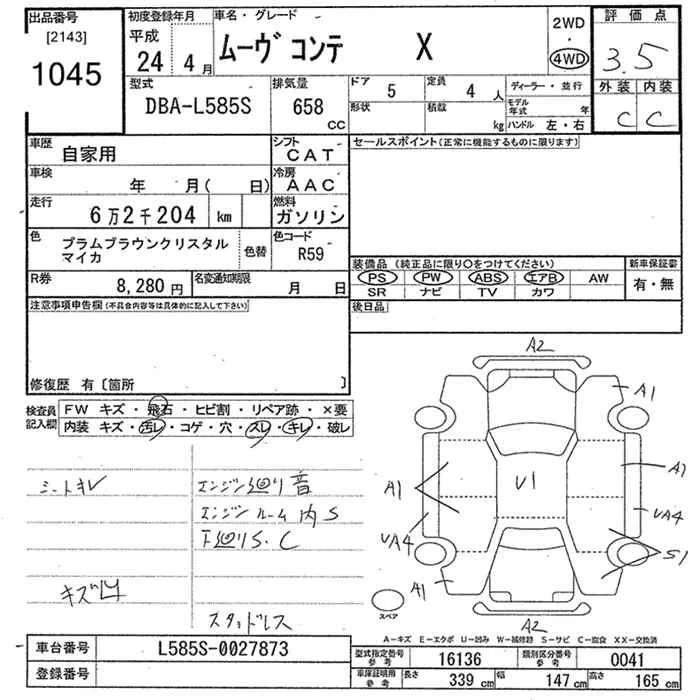 出品番号
[2143]
1045
初度登録年月
平成
24年 4月
車名・グレード
ムーヴ コンテ X
2WD
4WD
評価点
3.5
外装 内装
C C
型式
DBA-L585S
排気量
658
CC
ドア 5
形状
定員 4 人
積載 kg
ディーラー・並行
モデル年式 年
ハンドル 左・右
車歴 自家用
シフト CAT
車検 年 月( 日)
冷房 AAC
走行 6万2千204 km
燃料 ガソリン
色 プラムブラウンクリスタル
マイカ
色替
色コード R59
R券 8,280円
名変通知期限 月 日
セールスポイント(正常に機能するものに限ります)
装備品 (純正品に限り○をつけてください)
PS PW ABS エアB AW
SR ナビ TV カワ
新車保証書
有・無
後日品
注意事項申告欄(不具合内容等は具体的に記入して下さい)
修復歴 有〔箇所 〕
検査員記入欄
FW キズ・飛石・ヒビ割・リペア跡・×要
内装 キズ・汚レ・コゲ・穴・スレ・キレ・破レ
シートキレ
エンジン廻り音
エンジンルーム内S
下廻りS.C
キズ凹
スタッドレス
A2
A1
A1
A1
V1
UA4
UA4
S1
A1
A2
スペア
A-キズ E-エクボ U-凹み W-補修跡 S-サビ C-腐食 XX-交換済
車台番号 L585S-0027873
登録番号
型式指定番号 参考 16136
類別区分番号 参考 0041
車庫証明用 参考 長さ 339 cm 幅 147 cm 高さ 165 cm